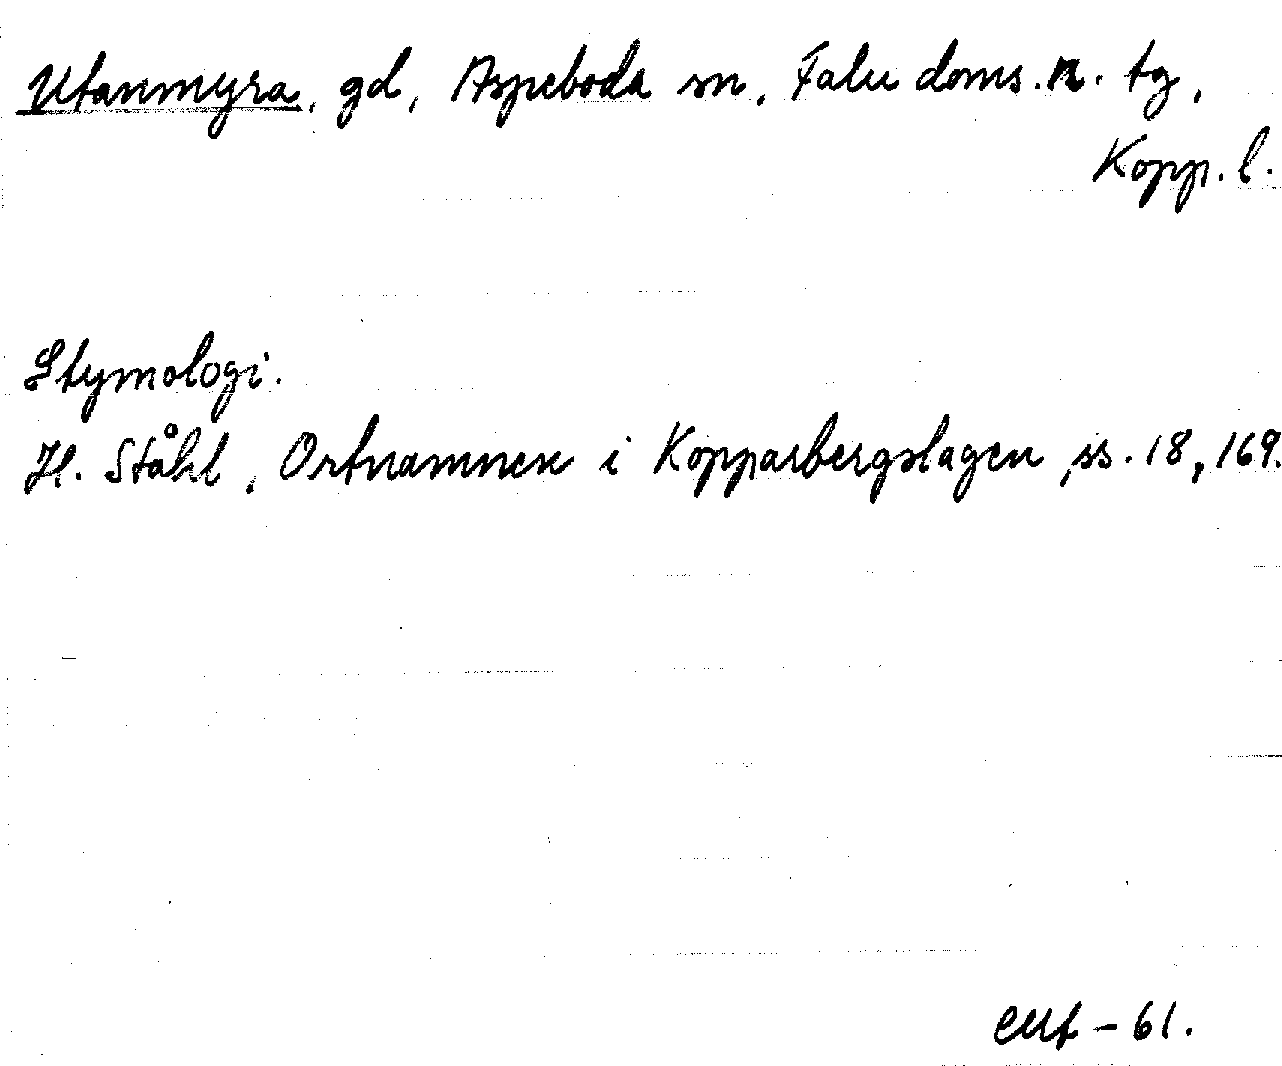 Utanmyra, gd, Aspeboda sn, Falu doms.n. tg,
Kopp. l.
Etymologi.
H. Ståhl, Ortnamnen i Kopparbergslagen, ss. 18, 169.
- 61.